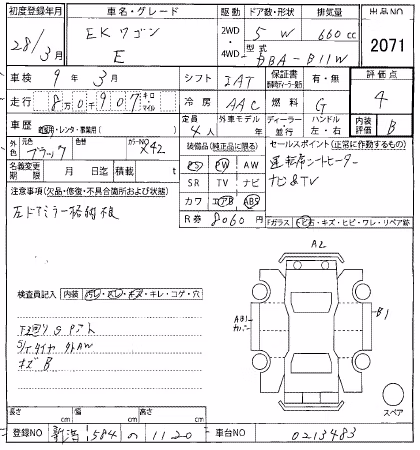 初度登録年月 車名・グレード 駆動 ドア数・形状 排気量 出品NO
28/3月 EKワゴン E 2WD 4WD 5 W 660cc 2071
型式 DBA-B11W
車検 9年 3月 シフト IAT 保証書 有・無 評価点
走行 8万0千907 キロ マイル 冷房 AAC 燃料 G 4
車歴 自家用・レンタ・事業用( ) 定員 4人 外車モデル 年 ディーラー 並行 ハンドル 左・右 内装 評価 B
外色 元色 ブラック 色替 カラーNO X42 装備品(純正品に限る) セールスポイント(正常に作動するもの)
名義変更期限 月 日迄 積載 t PS PW AW 運転席シートヒーター
SR TV ナビ ナビ&TV
注意事項(欠品・修復・不具合箇所および状態) カワ エアB ABS
左ドアミラー格納不良 R券 8060円 Fガラス
A2
検査員記入 内装 ・キレ・コゲ・穴
B1
下回りSアト
S/Tタイヤ 外AW
キズB
スペア
長さ cm 幅 cm 高さ cm
登録NO 新潟 584 の 1120 車台NO 0213483